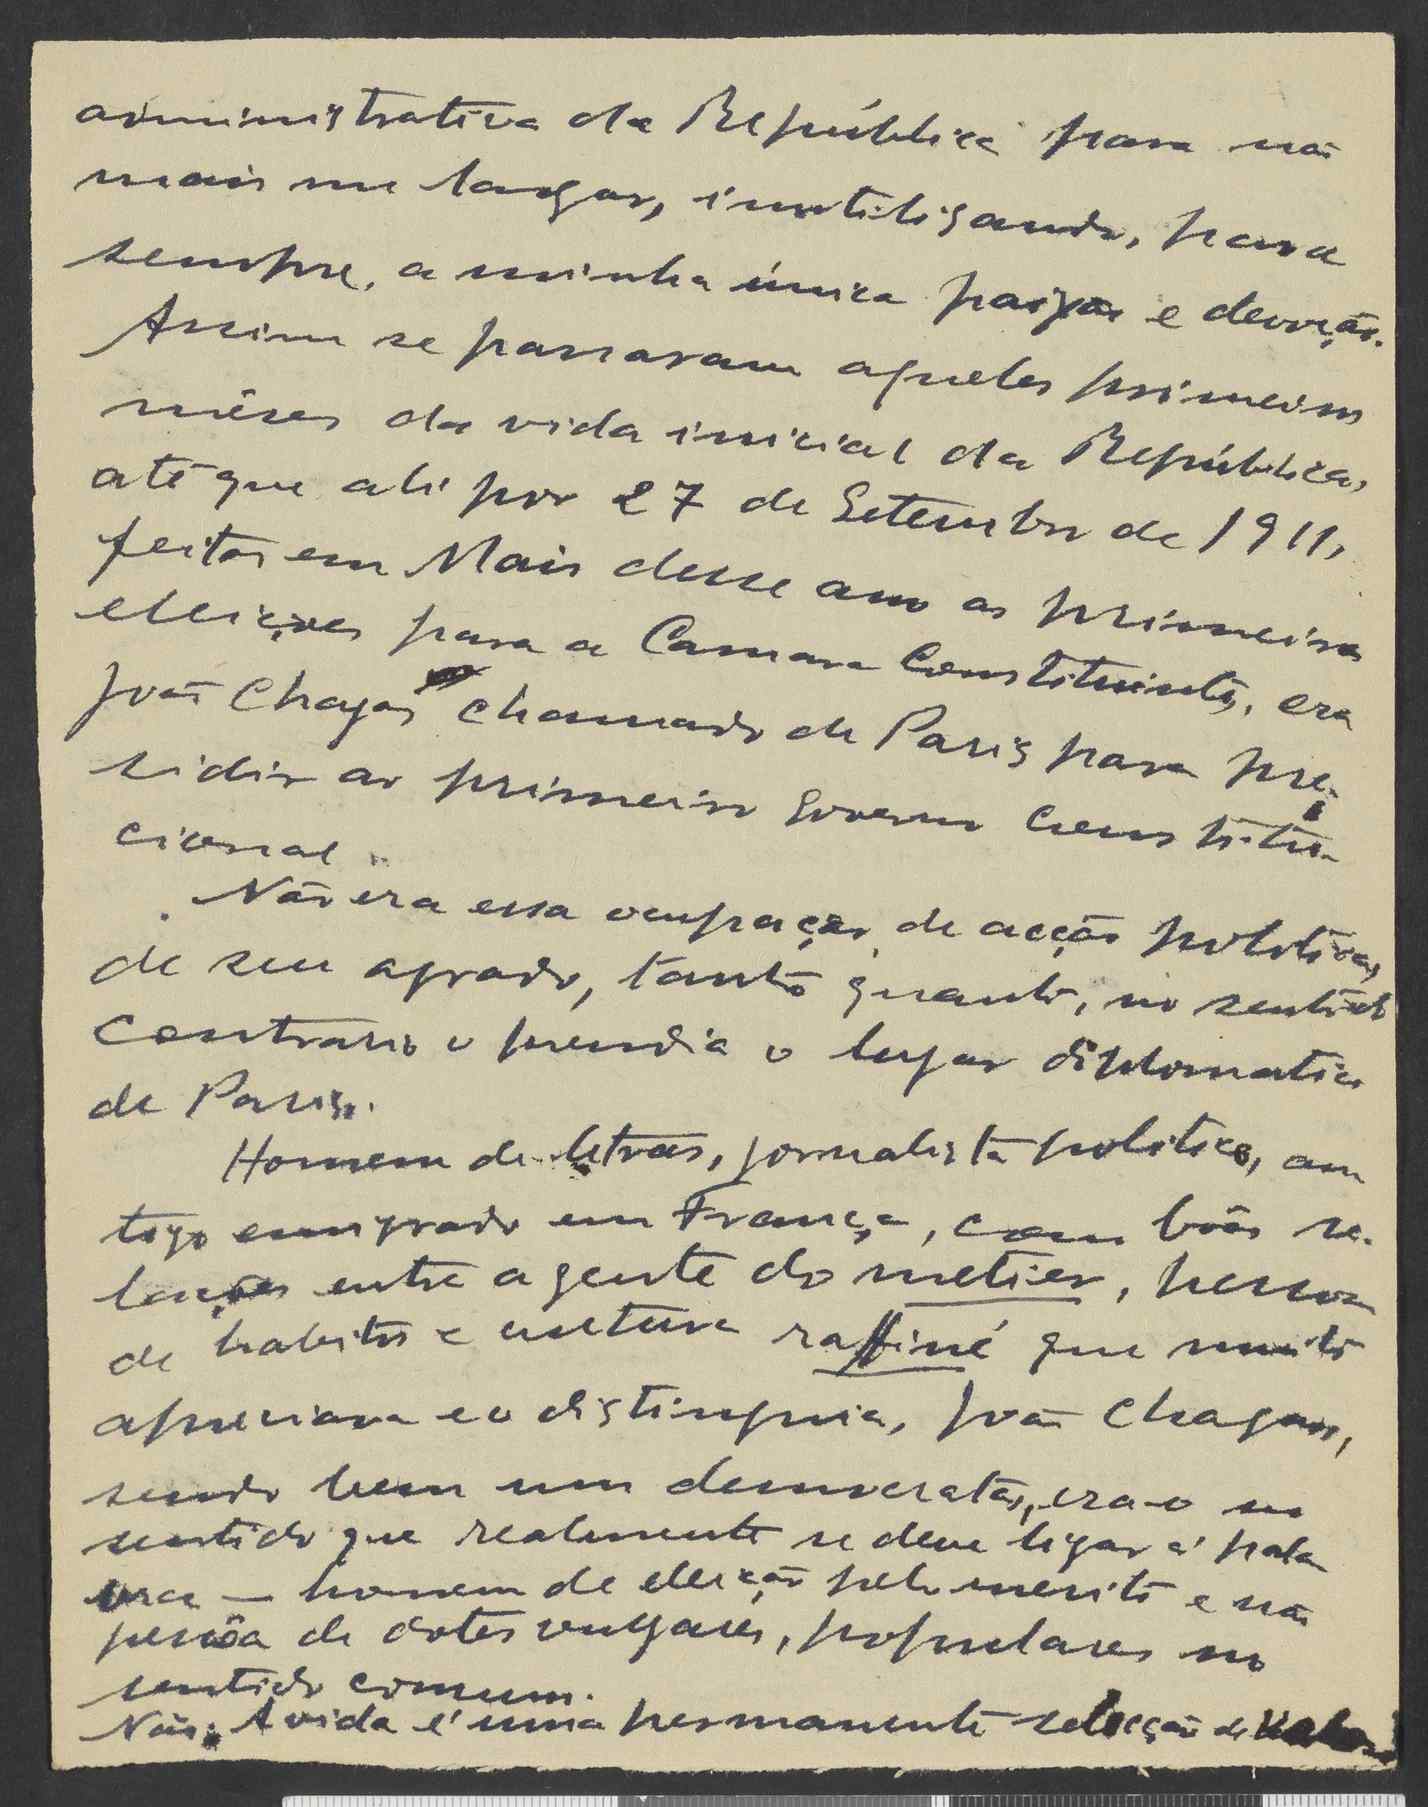 administrativa da República para não
mais me largar, inutilizando, para
sempre, a minha única paixão e devoção.
Assim se passaram aqueles primeiros
mêses da vida inicial da República,
até que ali por 27 de Setembro de 1911,
feitas em Maio desse ano as primeiras
eleições para a Camara Constituinte, era
João Chagas chamado de Paris para pre-
sidir ao primeiro Governo Constitu-
cional.
Não era essa ocupação, de acção politica,
de seu agrado, tanto quanto, no sentido
contrario o prendia o lugar diplomatico
de Paris.
Homem de letras, jornalista politico, an
tigo emigrado em França, com bôas re-
lações entre a gente do metier, pessoa
de habitos e cultura raffiné que muito
apreciava e o distinguia, João Chagas,
sendo bem um democrata, era-o no
sentido que realmente se deve ligar á pala
vra — homem de eleição pelo merito e não
pessôa de dotes vulgares, populares no
sentido comum.
Não. A vida é uma permanente selecção de valores